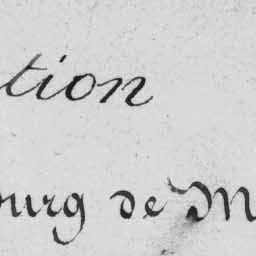 tion
ourg de M